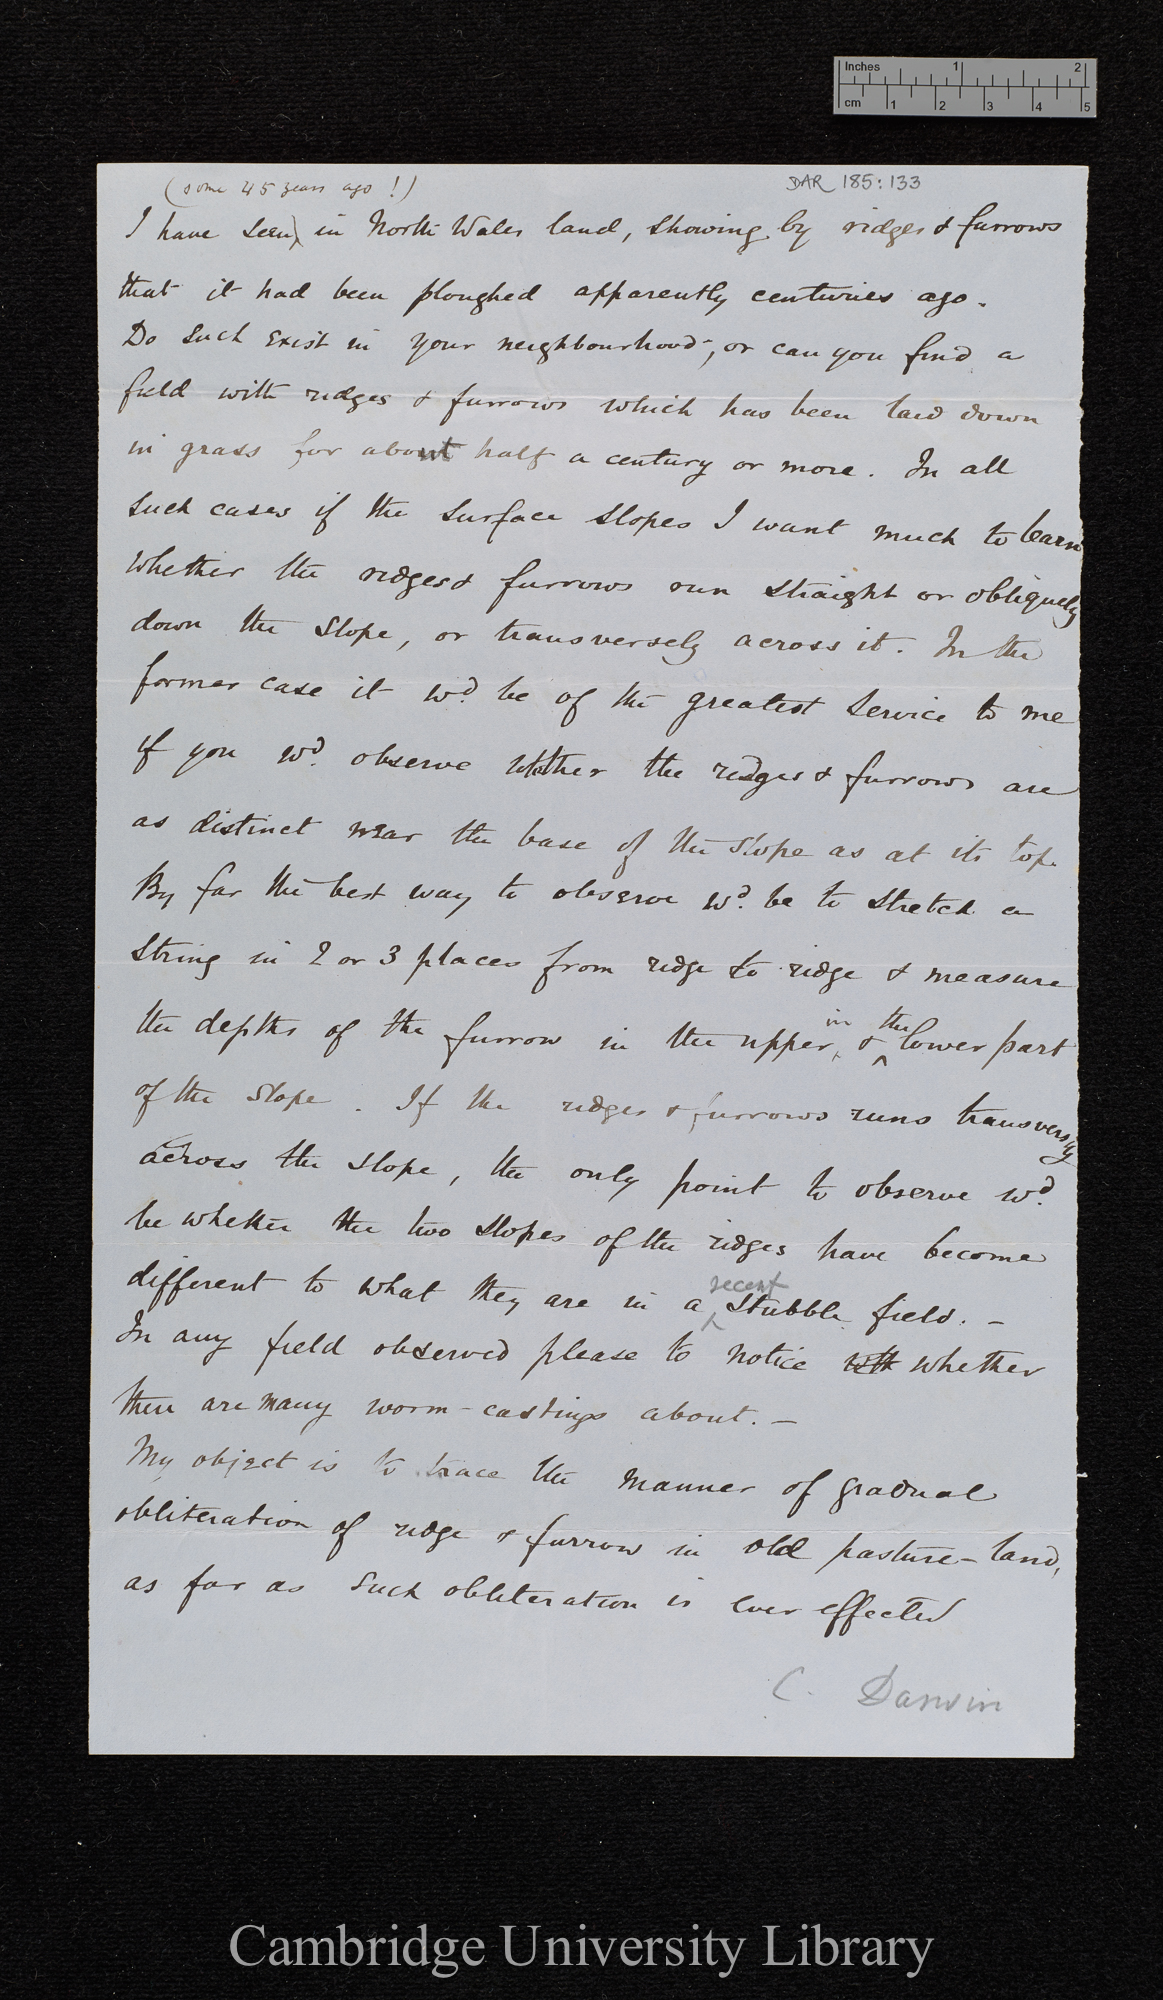 Inches 1 2
cm 1 2 3 4 5
(some 45 years ago!)
DAR 185:133
I have seen in North Wales land, showing by ridges & furrows
that it had been ploughed apparently centuries ago.
Do such exist in your neighbourhood, or can you find a
field with ridges & furrows which has been laid down
in grass for about half a century or more. In all
such cases if the surface slopes I want much to learn
whether the ridges & furrows run straight or obliquely
down the slope, or transversely across it. In the
former case it wd. be of the greatest service to me
if you wd. observe whether the ridges & furrows are
as distinct near the base of the slope as at its top.
By far the best way to observe wd. be to stretch a
string in 2 or 3 places from ridge to ridge & measure
in the
the depths of the furrow in the upper, & lower part
of the slope. If the ridges & furrows runs transversly
across the slope, the only point to observe wd.
be whether the two slopes of the ridges have become
recent
different to what they are in a stubble field. —
In any field observed please to notice whether
there are many worm-castings about. —
My object is to trace the manner of gradual
obliteration of ridge & furrow in old pasture-land,
as far as such obliteration is ever effected
C. Darwin
Cambridge University Library